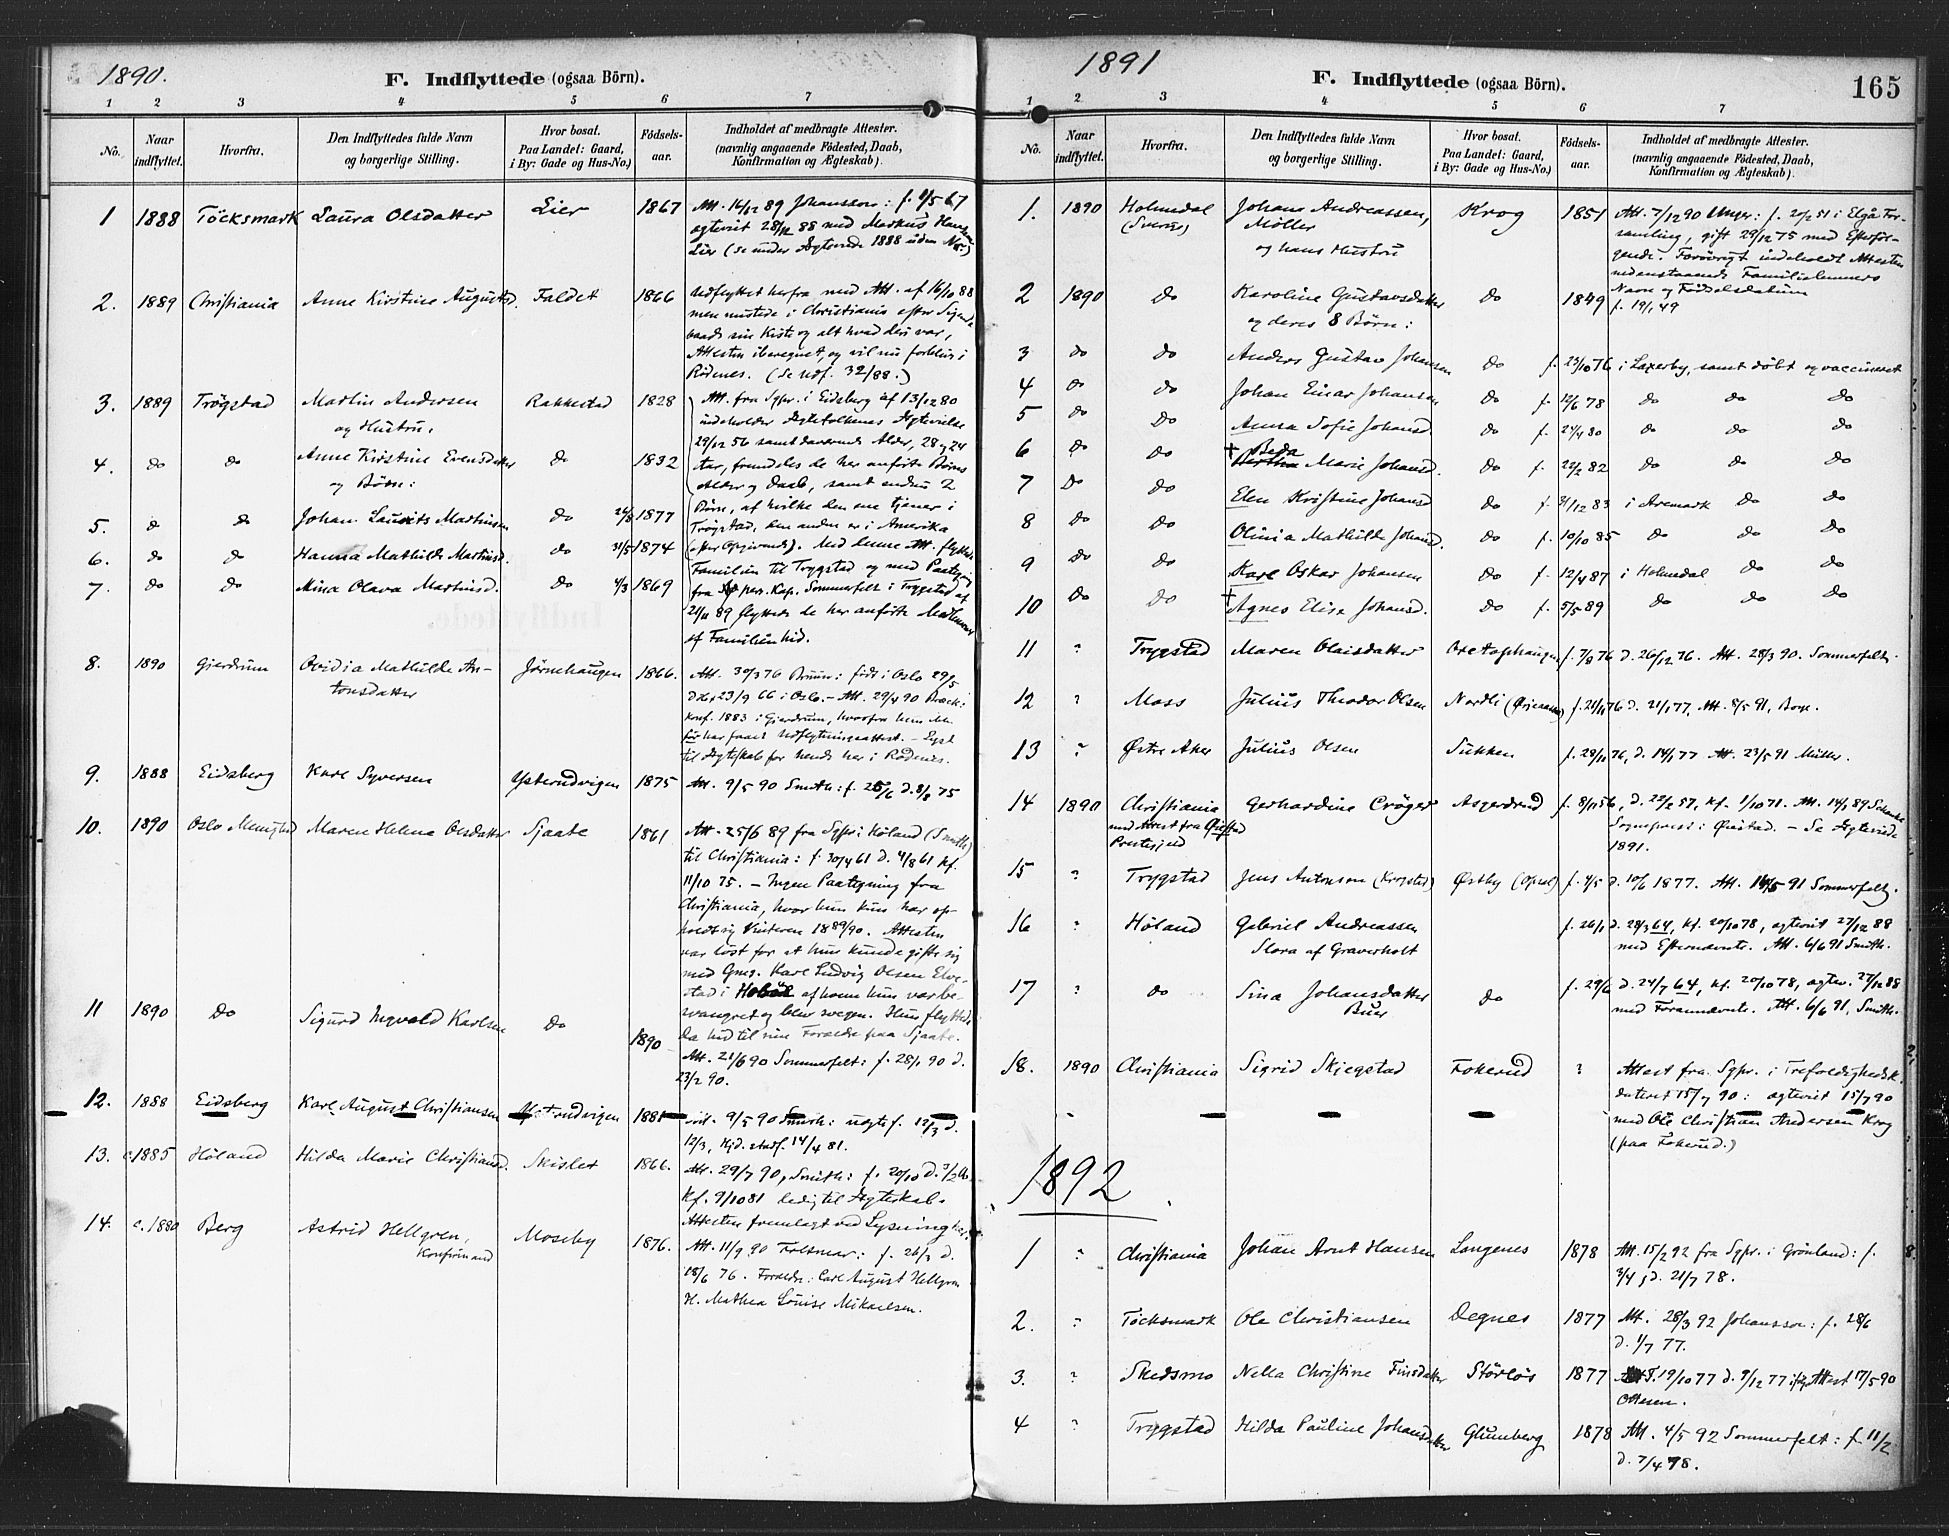 1890.
F. Indflyttede (ogsaa Börn).
1 2 3 4 5 6 7
No.
Naar indflyttet.
Hvorfra.
Den Indflyttedes fulde Navn
og borgerlige Stilling.
Hvor bosat.
Paa Landet: Gaard,
i By: Gade og Hus-No.)
Födsels-
aar.
Indholdet af medbragte Attester.
(navnlig angaaende Födested, Daab,
Konfirmation og Ægteskab).
1 1888 Töcksmark Laura Olsdatter Lier 1867 Att. 16/12 89 Johansson: f. 9/5 67
ægteviet 28/12 88 med Markus Hansen
Lier (se under Ægteviede 1888 uden No.)
2. 1889 Christiania Anne Kirstine Augustsd. Faldet 1866 Udflyttet herfra med Att. af 16/10 88
men mistede i Christiania efter Sigende
baade sin Kiste og alt hvad deri var,
Attesten iberegnet, og vil nu forblive i
Rödenes. (Se Udf. 32/88.)
3. 1889 Trögstad Martin Andersen Rakkestad 1828 Att. fra Sgpr. i Eidsberg af 13/12 80
og Hustru: indeholder Ægtefolkenes Ægtevielse
29/12 56 samt daværende Alder, 28 og 24
4. do do Anne Kirstine Evensdatter do 1832 Aar, fremdeles de her anförte Börns
og Börn: Alder og Daab, samt endnu 2
5. do do Johan Laurits Martinsen do 26/8 1877 Börn, af hvilke den ene tjener i
Trögstad, den anden er i Amerika
6. do do Hanna Mathilde Martinsd. do 31/5 1874 (efter Opgivende). Med denne Att. flyttede
Familien til Trygstad og med Paategning
7. do do Mina Olava Martinsd. do 4/3 1869 fra pers. Kap. Sommerfelt i Trygstad af
21/11 89 flyttede de her anförte Medlemmer
af Familien hid.
8. 1890 Gjerdrum Ovidia Mathilde An- Jörnehaugen 1866. Att. 30/3 76 Bruun: födt i Oslo 29/5
tonsdatter Döbt 23/9 66 i Oslo. – Att. 29/4 90 Bræck:
konf. 1883 i Gjerdrum, hvorfra hun
för har faaet Udflytningsattest. – Lyst
til Ægteskab for hende her i Rödenes.
9. 1888 Eidsberg Karl Syversen Ysterudvigen 1875 Att. 9/5 90 Smith: f. 25/6 d. 8/8 75
10. 1890 Oslo Menighed Maren Helena Olsdatter Sjaabe 1861 Att. 25/6 89 fra Sgpr. i Höland (Smith)
til Christiania: f. 30/4 61 d. 4/8 61 kf.
11/10 75. – Ingen Paategning fra
Christiania, hvor hun kun har op-
holdt sig Vinteren 1889/90. Attesten
var löst for at hun kunde gifte sig
med Gmr. Karl Ludvig Olsen Elve-
stad i Haböl af hvem hun var be-
11 1890 Do Sigurd Ingvald Karlsen Do 1890 svangret og blev svegen. Hun flyttede
da hid til sine Forældre paa Sjaabe.
Att. 21/6 90 Sommerfelt: f. 28/1 90 d.
23/2 90.
12. 1888 Eidsberg Karl August Christiansen Ysterudvigen 1881 Att. 9/5 90 Smith: uægtef. 12/3 d.
12/3, Kjd. stadf. 14/4 81.
13. c1885 Höland Hilda Marie Christiansd. Skislet 1866. Att. 29/7 90, Smith: f. 20/10 d.
kf. 9/10 81 ledig til Ægteskab.
Attesten fremlagt ved Lysning her.
14. c.1880 Berg Astrid Hellgren, Moseby 1876. Att. 11/9 90 Feltmar: f. 26/3 d.
Konfirmand 18/6 76. Forældre: Carl August Hellgren
H. Mathea Louise Mikaelsen.
1891
F. Indflyttede (ogsaa Börn).
165
1 2 3 4 5 6 7
No.
Naar indflyttet.
Hvorfra.
Den Indflyttedes fulde Navn
og borgerlige Stilling.
Hvor bosat.
Paa Landet: Gaard,
i By: Gade og Hus-No.)
Födsels-
aar.
Indholdet af medbragte Attester.
(navnlig angaaende Födested, Daab,
Konfirmation og Ægteskab).
1. 1890 Holmedal Johans Andreassen, Krog 1851 Att. 7/12 90 Unger: f. 20/2 51 i Elgå For-
(Sverige) Möller samling, gift 29/12 75 med Efterföl-
og hans Hustru gende. Forövrigt indeholdt Attesten
nedenstaaende Familielemmers
Navn og Födselsdatum
2 1890 do Karoline Gustavsdatter do 1849 f. 19/1 49
og deres 8 Börn:
3 do do Anders Gustav Johansen do f. 23/10 76 i Laxerby, samt döbt og vaccineret
4 do do Johan Einar Johansen do f. 12/6 78 do do do
5 do do Anna Sofie Johansd. do f. 24/4 80 do do do
6 do do † Beda Marie Johansd. do f. 22/2 82 do do do
7 do do Elen Kristine Johansd do f. 31/12 83 i Aremark do do
8 do do Olivia Mathilde Johansd. do f. 10/10 85 do do do
9 do do Karl Oskar Johansen do f. 12/4 87 i Holmedal do do
10 do do † Agnes Elise Johansd. do f. 5/5 89 do do do
11 " Trygstad Maren Olaisdatter f. 7/8 76 d. 26/12 76. Att. 28/3 90. Sommerfelt.
12 " Moss Julius Theodor Olsen Nordli f. 21/11 76 d. 21/1 77. Att. 8/5 91,
13 " Östre Aker Julius Olsen Sukken f. 28/11 76, d. 14/1 77 Att. 23/5 91 Müller.
14 1890 Christiania Gerhardine Cröger Asgerdrud f. 8/11 56, d. 22/2 57, kf. 1/10 71. Att. 14/1 89
med Attest fra Öiestad Sognepræst i Öiestad. – Se Ægteviede
Prestegjeld 1891.
15 " Trygstad Jens Antonsen (Krogstad) Östby f. 4/5 d. 10/6 1877. Att. 14/5 91 Sommerfelt.
16 " Höland Gabriel Andreassen f. 26/1 d. 28/3 64, kf. 20/10 78, ægteviet 27/12 88
Slora af Graverholt med Efternævnte. Att. 6/6 91 Smith.
17 " do Sina Johansdatter do f. 29/6 d. 24/7 64, kf. 20/10 78, ægtev. 27/12 88
Buer med Forannævnte. Att. 6/6 91, Smith.
18. 1890 Christiania Sigrid Skjegstad Fokerud ? Attest fra Sgpr. i Trefoldighedsk.
dateret 15/7 90: ægteviet 15/7 90
med Ole Christian Andersen Krog
(paa Fokerud.)
1892
1 " Christiania Johan Arnt Hansen Langenes 1878 Att. 15/2 92 fra Sgpr. i Grönland: f.
3/4, d. 21/7 78.
2. " Töcksmark Ole Christiansen Degnes 1877 Att. 28/3 92 Johansson: f. 28/6
d. 1/7 77.
3. " Skedsmo Nella Christine Finsdatter Störlös 1877 f. 19/10 77 d. 9/12 77 Attest 17/5 90
Ottesen.
4 " Trygstad Hilda Pauline Johansdatter Glumberg 1878 Att. 4/5 92 Sommerfelt: f. 11/2
d. 7/4 78.